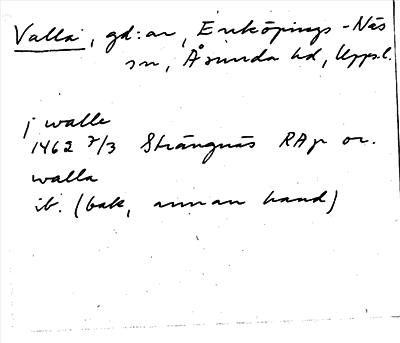 Valla, gd:ar, Enköpings-Näs
sn, Åsunda hd, Uppl.
j walle
1462 7/3 Strängnäs RAp or.
walla
ib. (bak, annan hand)